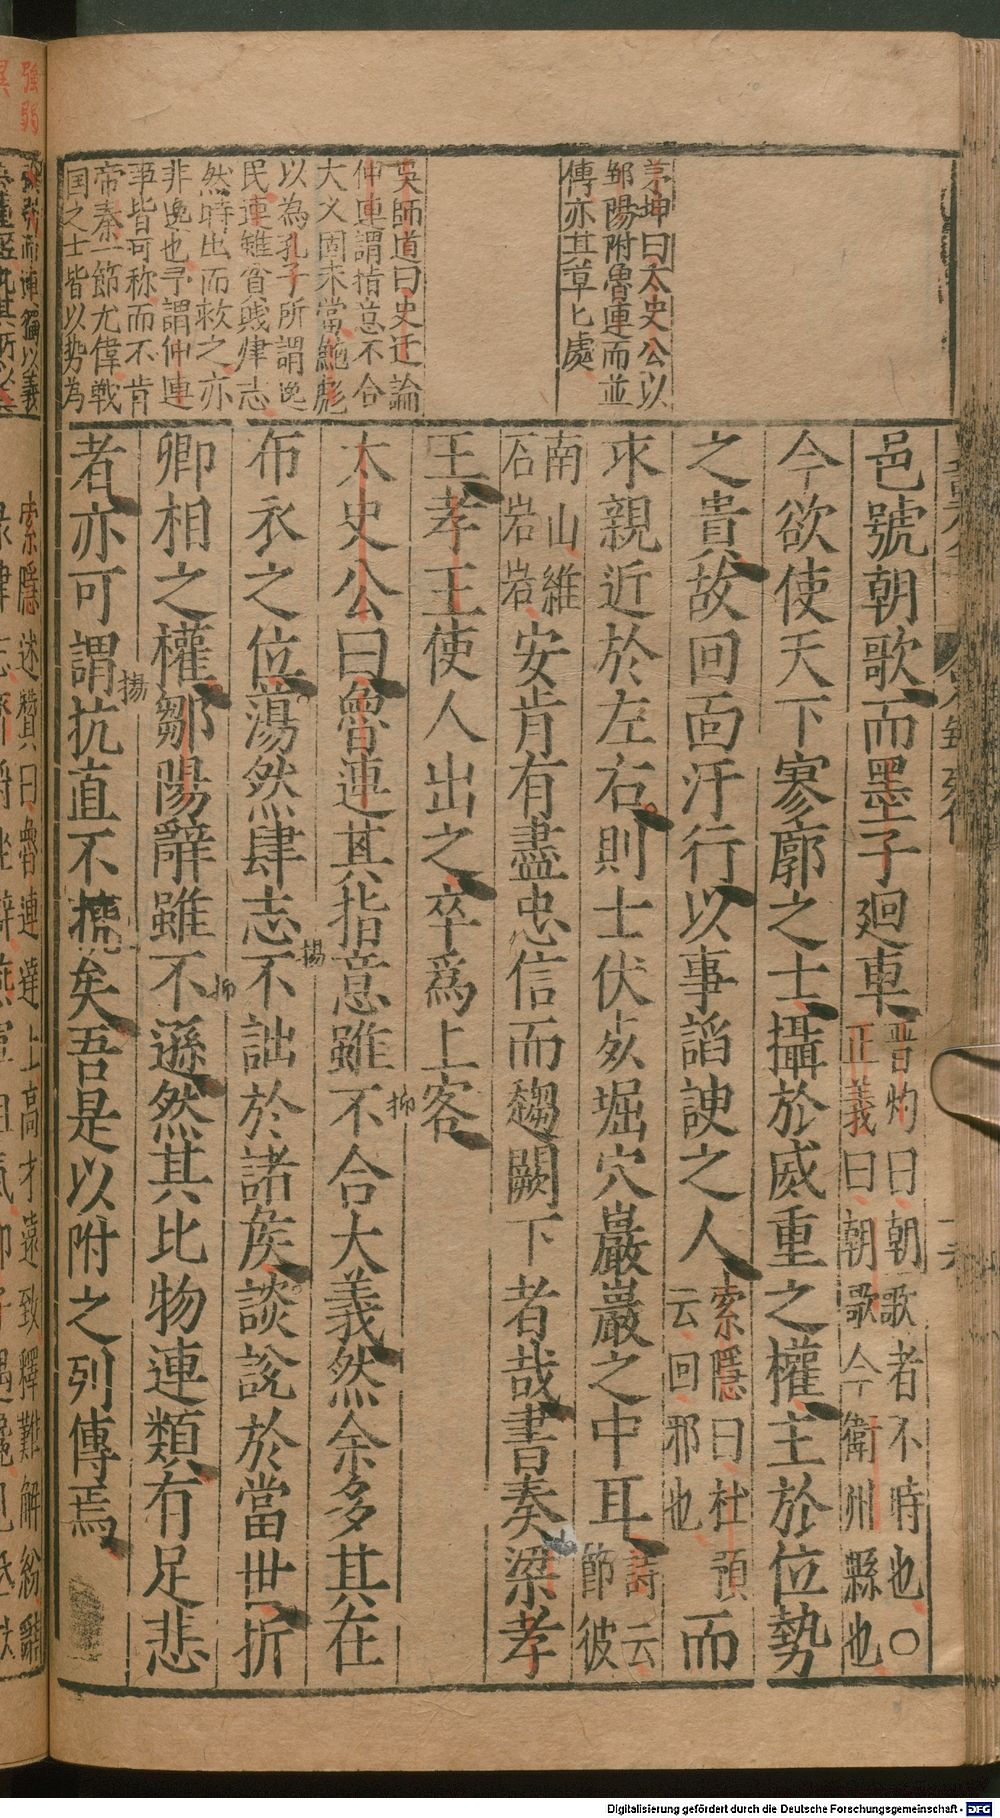 茅坤曰太史公以
鄒陽附魯連而並
傳亦其草匕處
吳師道曰史迁論
仲連謂指意不合
大义固未當鮑彪
以為孔子所謂逸
民連雖貧賎肆志
然時出而救之亦
非逸也予謂仲連
事皆可称而不肯
帝秦一節尤偉戰
囯之士皆以势為
邑號朝歌而墨子廻車
晋灼曰朝歌者不時也○
正義曰朝歌今衛州縣也
今欲使天下寥廓之士攝於威重之權主於位勢
之貴故回面汙行以事謟諛之人
索隱曰杜預
云回邪也
而
求親近於左右則士伏死堀穴巖巖之中耳
詩云
節彼
南山維
石岩岩
安肯有盡忠信而趨闕下者哉書奏梁孝
王孝王使人出之卒爲上客
太史公曰魯連其指意雖不合大義然余多其在
抑
布衣之位蕩然肆志不詘於諸矦談說於當世折
揚
卿相之權鄒陽辭雖不遜然其比物連類有足悲
抑
者亦可謂抗直不橈矣吾是以附之列傳焉
揚
索隱述贊曰魯連達士高才遠致釋難解紛辭
強弱
Digitalisierung gefördert durch die Deutsche Forschungsgemeinschaft - DFG